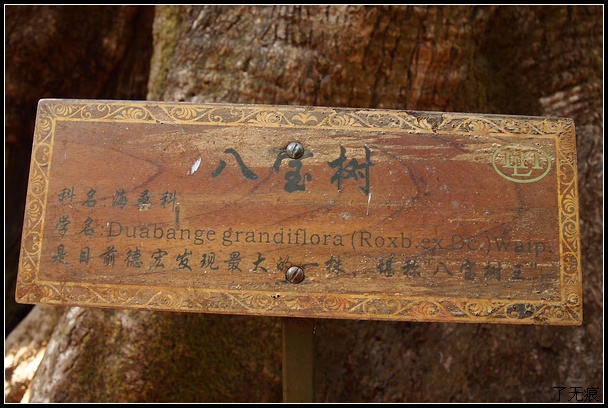 八宝树
科名:海桑科
学名:Duabange grandiflora (Roxb.ex.Dc.)Walp.
是目前德宏发现最大的一株，堪称八宝树王
了无痕